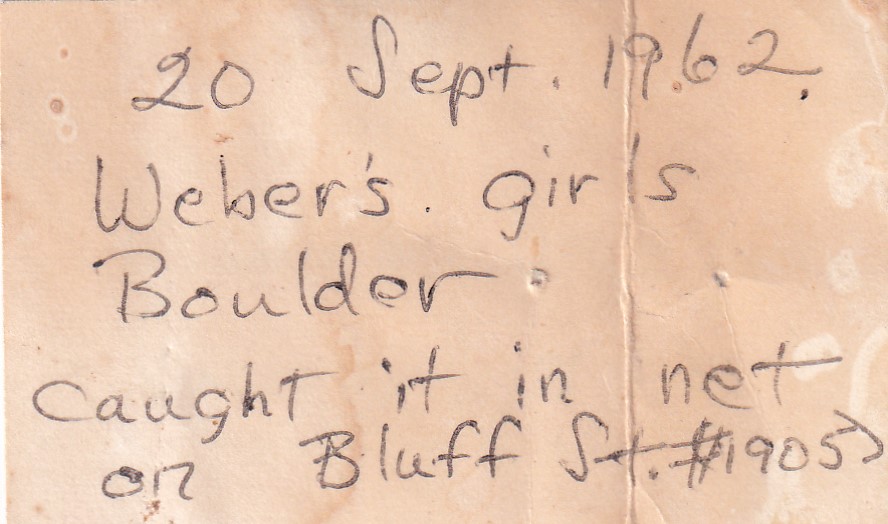 20 Sept. 1962.
Weber's. girls
Boulder
caught it in net
on Bluff St. #1905)